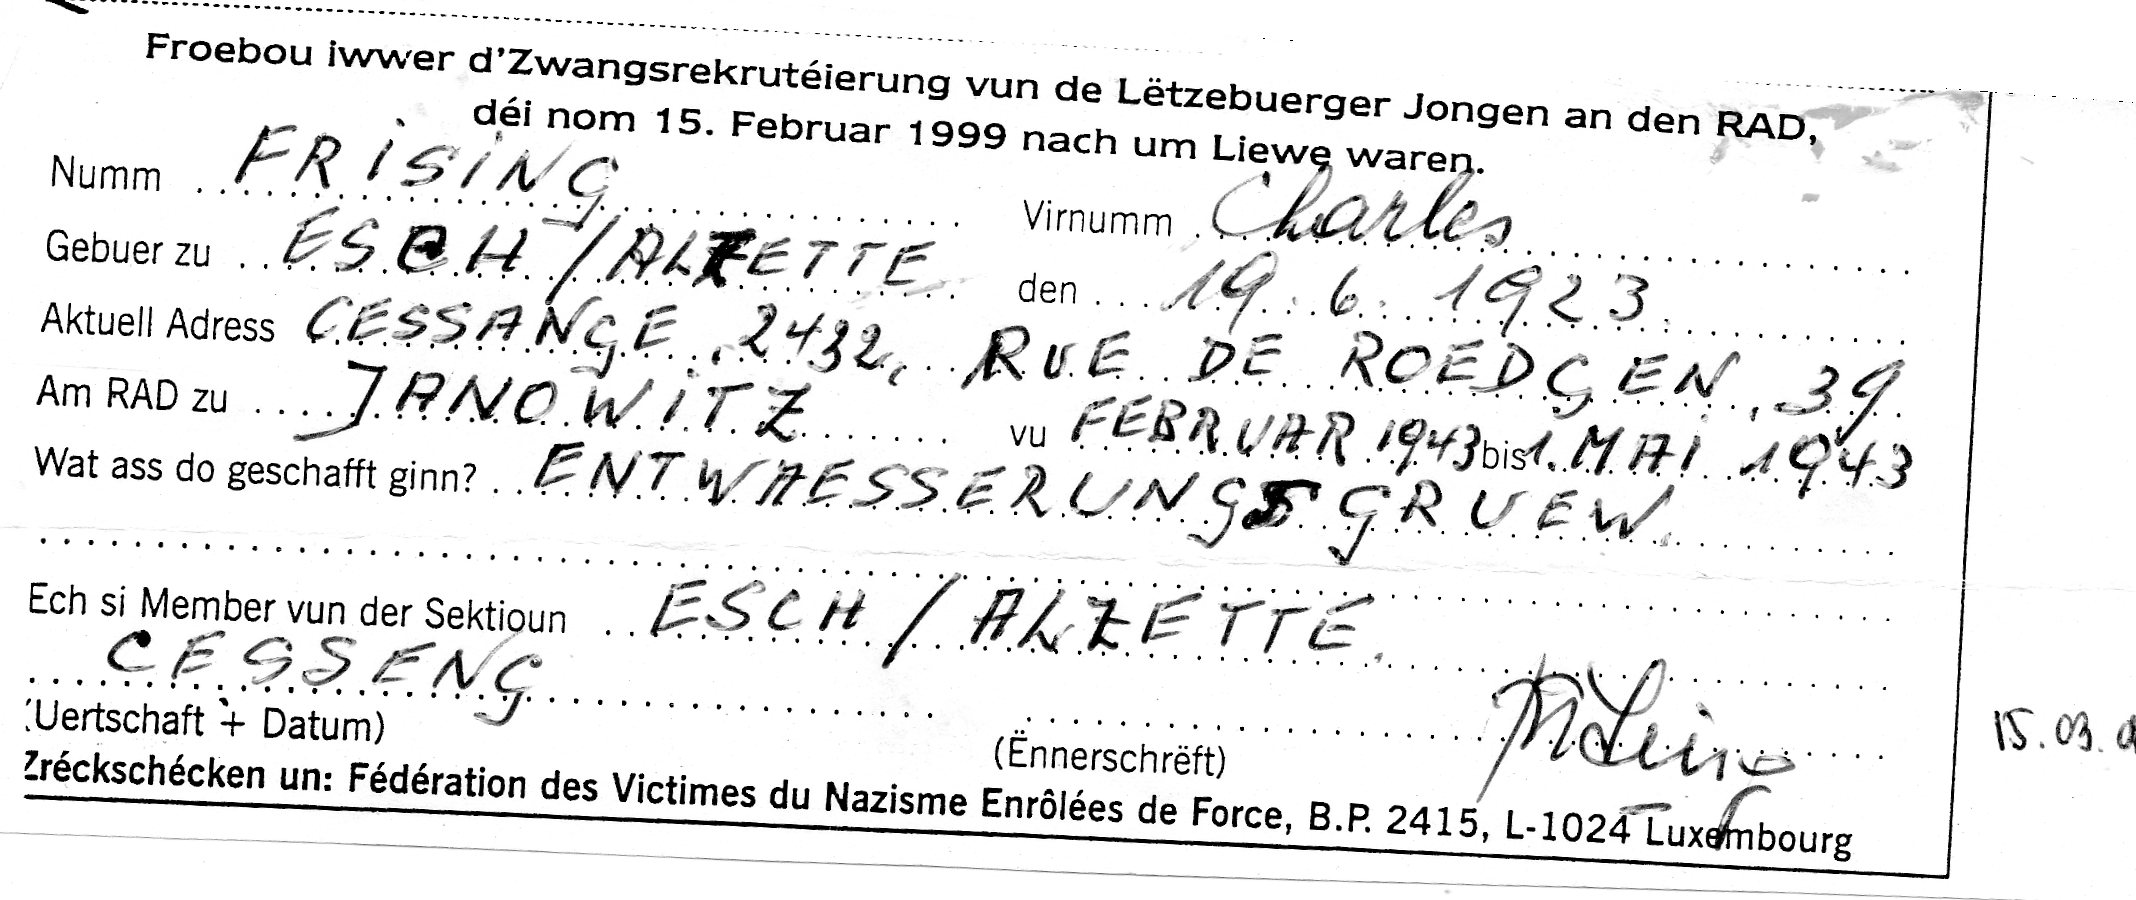 Froebou iwwer d'Zwangsrekrutéierung vun de Lëtzebuerger Jongen an den RAD,
déi nom 15. Februar 1999 nach um Liewe waren.
Numm FRISING Virnumm Charles
Gebuer zu ESCH/ALZETTE den 19.6.1923.
Aktuell Adress CESSANGE, 2432, RUE DE ROEDGEN, 39
Am RAD zu JANOWITZ vu FEBRUAR 1943 bis 1. MAI 1943
Wat ass do geschafft ginn? ENTWAESSERUNGSGRUEW.
Ech si Member vun der Sektioun ESCH/ALZETTE.
CESSENG
(Uertschaft + Datum) (Ënnerschrëft) 15.03.
Zréckschécken un: Fédération des Victimes du Nazisme Enrôlées de Force, B.P. 2415, L-1024 Luxembourg